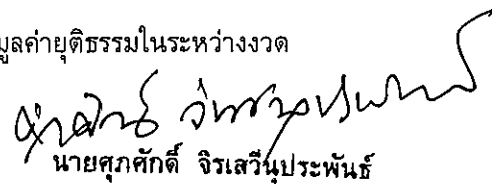 มูลค่ายุติธรรมในระหว่างงวด
นายศุภศักดิ์ จิรเสวีนุประพันธ์